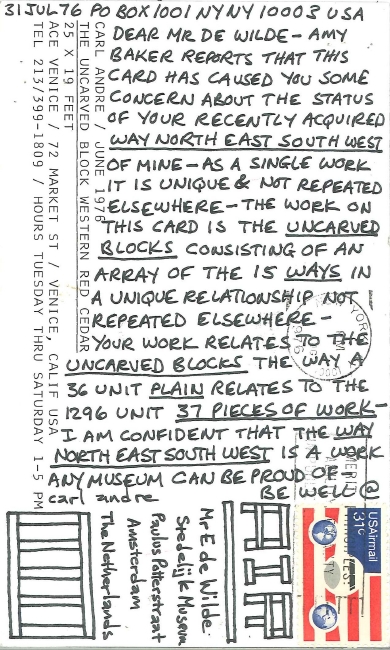 31 JUL 76 PO BOX 1001 NY NY 10003 USA
DEAR MR DE WILDE - AMY
BAKER REPORTS THAT THIS
CARD HAS CAUSED YOU SOME
CONCERN ABOUT THE STATUS
OF YOUR RECENTLY ACQUIRED
WAY NORTH EAST SOUTH WEST
OF MINE - AS A SINGLE WORK
IT IS UNIQUE & NOT REPEATED
ELSEWHERE - THE WORK ON
THIS CARD IS THE UNCARVED
BLOCKS CONSISTING OF AN
ARRAY OF THE 15 WAYS IN
A UNIQUE RELATIONSHIP NOT
REPEATED ELSEWHERE -
YOUR WORK RELATES TO THE
UNCARVED BLOCKS THE WAY A
36 UNIT PLAIN RELATES TO THE
1296 UNIT 37 PIECES OF WORK -
I AM CONFIDENT THAT THE WAY
NORTH EAST SOUTH WEST IS A WORK
ANY MUSEUM CAN BE PROUD OF
carl andre BE WELL @
CARL ANDRE / JUNE 1976
THE UNCARVED BLOCK WESTERN RED CEDAR
25 X 19 FEET
ACE VENICE / 72 MARKET ST / VENICE, CALIF USA
TEL 213/399-1809 / HOURS TUESDAY THRU SATURDAY 1-5 PM
AIR
Mr E de Wilde
Stedelijk Museum
Paulus Potterstraat
Amsterdam
The Netherlands
USAirmail
31c